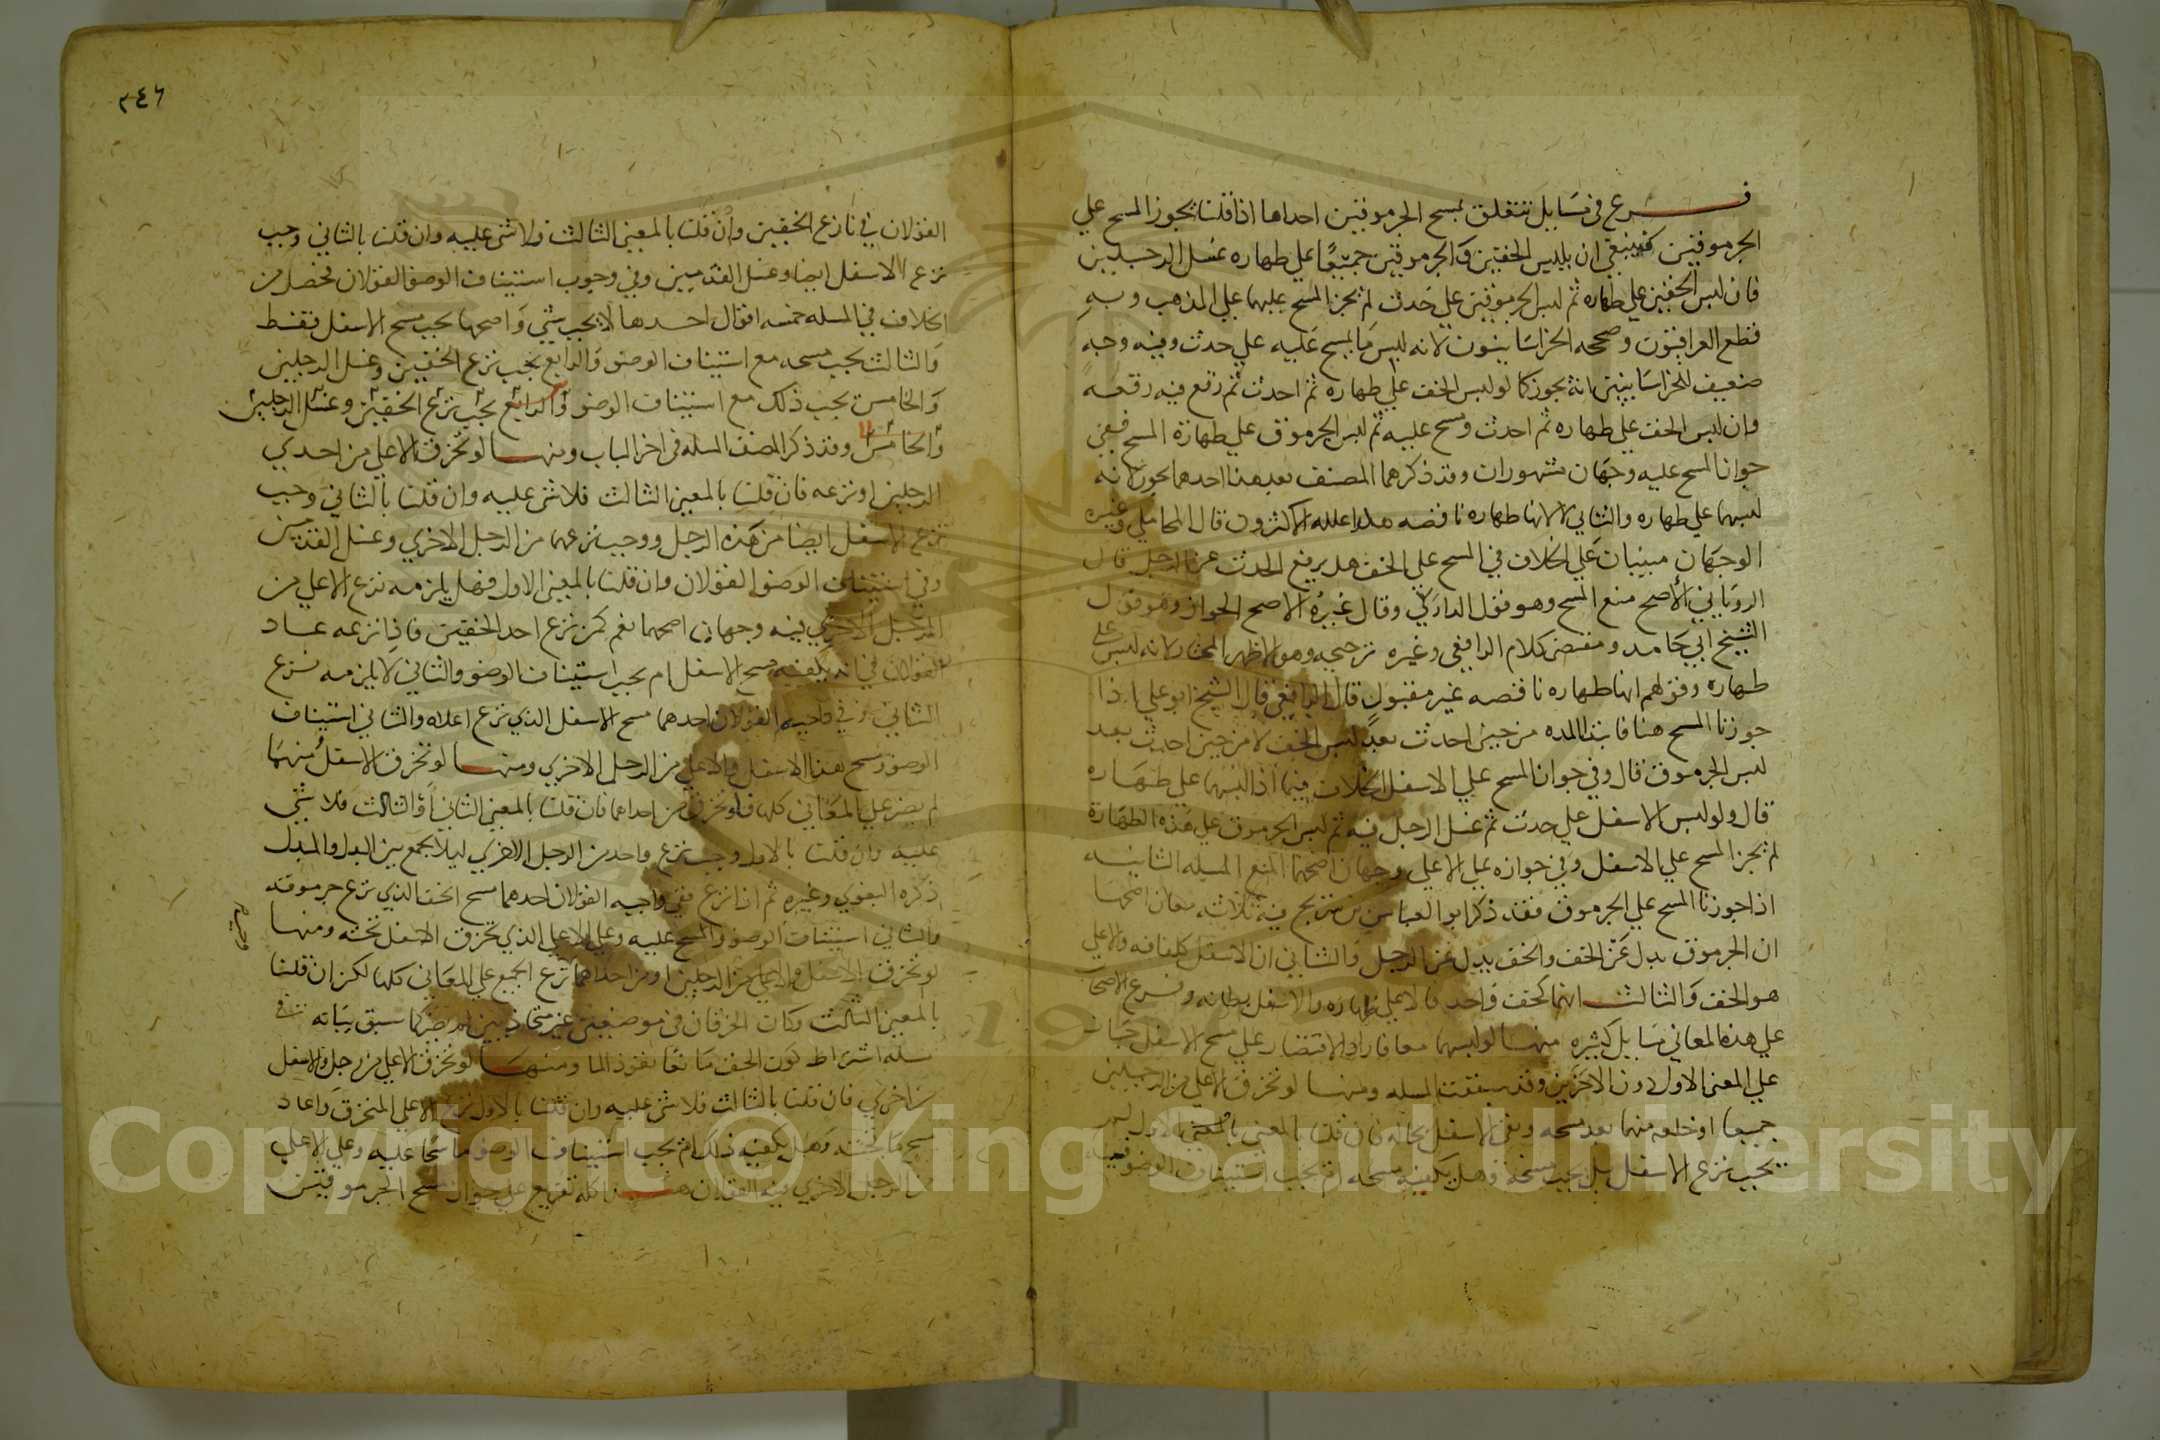 فرع في مسايل تتعلق بمسح الجرموقين احداها اذا قلنا يجوز المسح علي
الجرموقين فينبغي ان يلبس الخفين والجرموقين جميعا علي طهاره غسل الرجلين
فان لبس الخفين علي طهاره ثم لبس الجرموقين علي حدث لم يجز المسح عليهما علي المذهب وبه
قطع العراقيون وصححه الخراسانيون لانه لبس ما يمسح عليه علي حدث وفيه وجه
ضعيف للخراسانيين انه يجوز كما لو لبس الخف علي طهاره ثم احدث ثم رقع فيه رقعه
وان لبس الخف علي طهاره ثم احدث ومسح عليه ثم لبس الجرموق علي طهارة المسح ففي
جواز المسح عليه وجهان مشهوران وقد ذكرهما المصنف بعد هذا احدهما يجوز لانه
لبسهما علي طهاره والثاني لا لانها طهاره ناقصه هكذا علله الاكثرون قال المحاملي وغيره
الوجهان مبنيان علي الخلاف في المسح علي الخف هل يرفع الحدث عن الرجل قال
الروياني الأصح منع المسح وهو قول الداركي وقال غيره الاصح الجواز وهو قول
الشيخ ابي حامد ومقتضي كلام الرافعي وغيره ترجيحه وهو الاظهر المختار لانه لبس علي
طهاره وقولهم انها طهاره ناقصه غير مقبول قال الرافعي قال الشيخ ابو علي اذا
جوزنا المسح هنا فابتدا المده من حين احدث بعد لبس الخف لا من حين احدث بعد
لبس الجرموق قال وفي جواز المسح علي الاسفل الخلاف فيما اذا لبسهما علي طهاره
قال ولو لبس الاسفل علي حدث ثم غسل الرجل فيه ثم لبس الجرموق علي هذه الطهارة
لم يجز المسح علي الاسفل وفي جوازه علي الاعلي وجهان اصحهما المنع المسله الثانيه
اذا جوزنا المسح علي الجرموق فقد ذكر ابو العباس بن سريج فيه ثلاثه معان اصحها
ان الجرموق بدل عن الخف والخف بدل عن الرجل والثاني ان الاسفل كلفافه والاعلي
هو الخف والثالث انهما كخف واحد فالاعلي ظهاره والاسفل بطانه وفرع الاصحاب
علي هذه المعاني مسايل كثيره منها لو لبسهما معا فاراد الاقتصار علي مسح الاسفل جاز
علي المعني الاول دون الاخرين وقد سبقت المسله ومنها لو تخرق الاعلي من الرجلين
جميعا او خلعه منهما بعد مسحه وبقي الاسفل بحاله فان قلنا بالمعني الاول لم
يجب نزع الاسفل بل يجب مسحه وهل يكفيه مسحه ام يجب استيناف الوضو فيه
٣٤٦
القولان في نازع الخفين وان قلنا بالمعني الثالث فلا شي عليه وان قلنا بالثاني وجب
نزع الاسفل ايضا وغسل القدمين وفي وجوب استيناف الوضو القولان فحصل من
الخلاف في المسله خمسه اقوال احدها لا يجب شي واصحها يجب مسح الاسفل فقط
والثالث يجب مسحه مع استيناف الوضو والرابع يجب نزع الخفين وغسل الرجلين
والخامس يجب ذلك مع استيناف الوضو والرابع يجب نزع الخفين وغسل الرجلين
والخامس وقد ذكر المصنف المسله في اخر الباب ومنها لو تخرق الاعلي من احدي
الرجلين او نزعه فان قلنا بالمعني الثالث فلا شي عليه وان قلنا بالثاني وجب
نزع الاسفل ايضا من هذه الرجل ووجب نزعهما من الرجل الاخري وغسل القدمين
وفي استيناف الوضو القولان وان قلنا بالمعني الاول فهل يلزمه نزع الاعلي من
الرجل الاخري فيه وجهان اصحهما نعم كمن نزع احد الخفين فاذا نزعه عاد
القولان في انه يكفيه مسح الاسفل ام يجب استيناف الوضو والثاني لا يلزمه نزع
الثاني وفي واجبه القولان احدهما مسح الاسفل الذي نزع اعلاه والثاني استيناف
الوضو ومسح هذا الاسفل والاعلي من الرجل الاخري ومنها لو تخرق الاسفل منهما
لم يضر علي المعاني كلها فلو تخرق من احداهما فان قلنا بالمعني الثاني أو الثالث فلا شي
عليه وان قلنا بالاول وجب نزع واحد من الرجل الاخري ليلا يجمع بين البدل والمبدل
ذكره البغوي وغيره ثم اذا نزع ففي واجبه القولان احدهما مسح الخف الذي نزع جرموقه
والثاني استيناف الوضو والمسح عليه وعلي الاعلي الذي تخرق الاسفل تحته ومنها
لو تخرق الاسفل والاعلي من الرجلين او من احداهما نزع الجميع علي المعاني كلها لكن ان قلنا
بالمعني الثالث وكان الخرقان في موضعين غير متحاذيين لم يضر كما سبق بيانه في
مسله اشتراط كون الخف مانعا نفوذ الما ومنها لو تخرق الاعلي من رجل والاسفل
من اخري فان قلنا بالثالث فلا شي عليه وان قلنا بالاول نزع الاعلي المتخرق واعاد
مسح ما تحته وهل يكفيه ذلك ام يجب استيناف الوضو ماسحا عليه وعلي الاعلي
من الرجل الاخري فيه القولان هذا كله تفريع علي جواز مسح الجرموقين